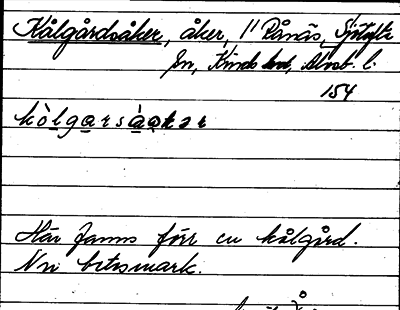 Kålgårdsåker, åker, 1/1 Rånäs, Sjötofta
sn, Kinds hd, Älvsb. l.
154
kòlgarsàkər
Här fanns förr en kålgård.
Nu betesmark.